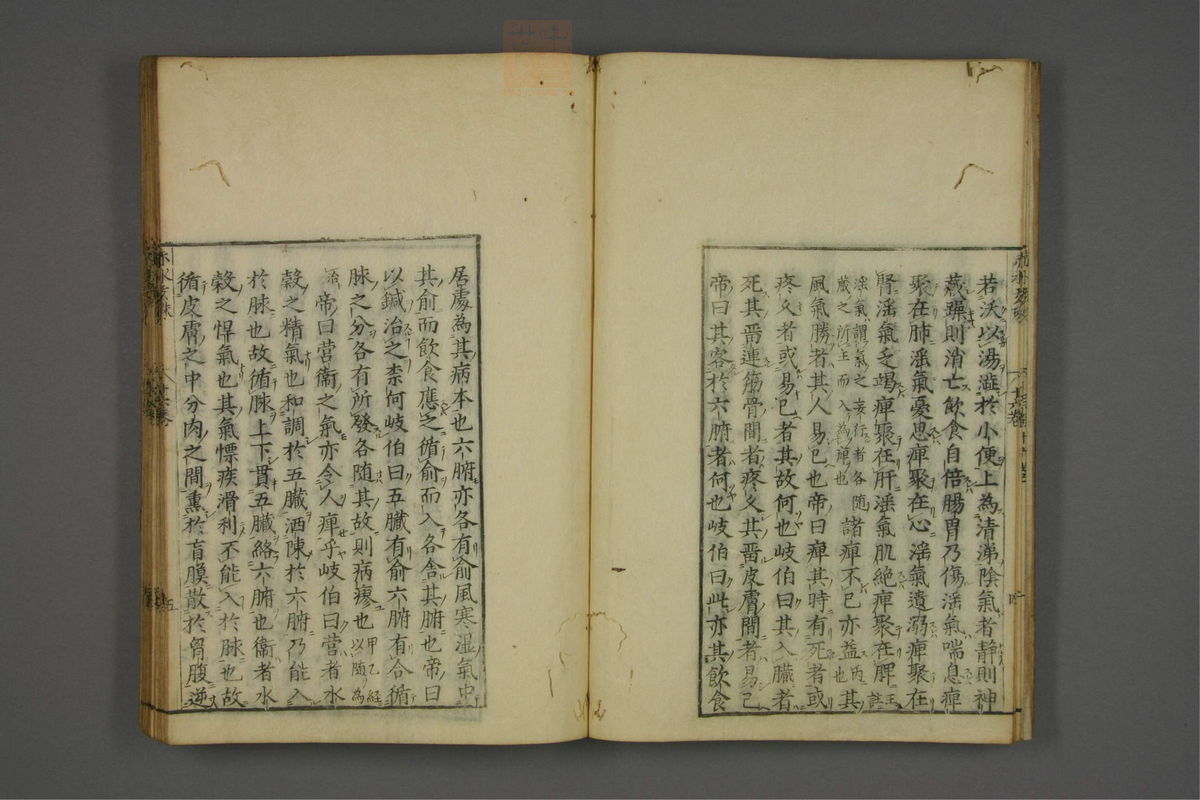 若沃以湯澁於小便上為清涕陰氣者静則神
藏躁則消亡飲食自倍腸胃乃傷淫氣喘息痺
聚在肺淫氣憂思痺聚在心淫氣遺溺痺聚在
腎淫氣乏竭痺聚在肝淫氣肌絶痺聚在脾王註
淫氣謂氣之妄行者各随
藏之所主而入為痺也
諸痺不已亦益内也其
風氣勝者其人易已也帝曰痺其時有死者或
疼久者或易已者其故何也岐伯曰其入臟者
死其畱連筋骨間者疼久其畱皮膚間者易已
帝曰其客於六腑者何也岐伯曰此亦其飲食
居處為其病本也六腑亦各有俞風寒湿氣中
其俞而飲食應之循俞而入各舎其腑也帝曰
以鍼治之柰何岐伯曰五臓有俞六腑有合循
脉之分各有所發各随其故則病瘳也甲乙経
以随為
治
帝曰営衛之氣亦令人痺乎岐伯曰営者水
穀之精氣也和調於五臓洒陳於六腑乃能入
於脉也故循脉上下貫五臓絡六腑也衛者水
穀之悍氣也其氣慓疾滑利不能入於脉也故
循皮膚之中分肉之間熏於肓膜散於胷腹逆